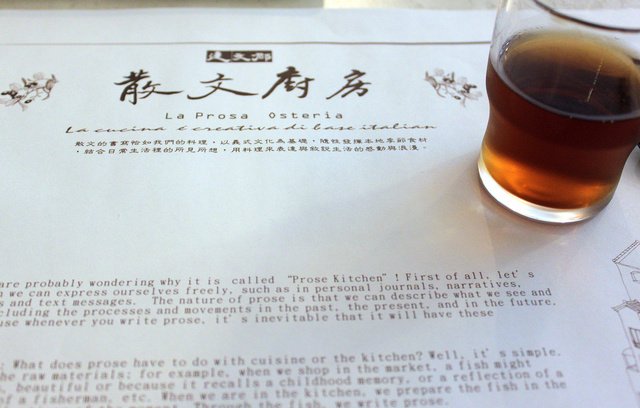 散文廚房
La Prosa Osteria
La cucina è creativa di base italian
散文的書寫恰如我們的料理，以義式文化為基礎，隨性發揮本地季節食材
，結合日常生活裡的所見所想，用料理來表達與敘說生活的感動與浪漫。
are probably wondering why it is called “Prose Kitchen”! First of all, let's
we can express ourselves freely, such as in personal journals, narratives,
s and text messages. The nature of prose is that we can describe what we see and
cluding the processes and movements in the past, the present, and in the future.
use whenever you write prose, it's inevitable that it will have these
: What does prose have to do with cuisine or the kitchen? Well, it's simple.
he raw materials; for example, when we shop in the market, a fish might
, beautiful or because it recalls a childhood memory, or a reflection of a
of a fisherman, etc. When we are in the kitchen, we prepare the fish in the
Through the fish, we write prose.